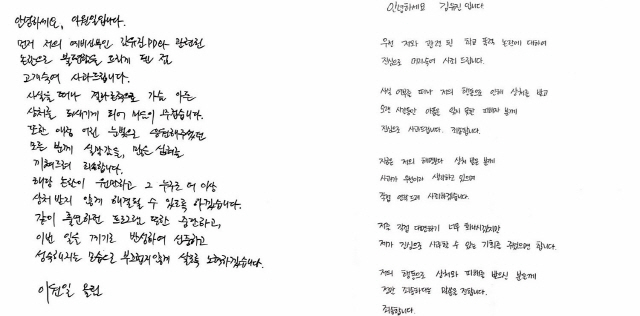 안녕하세요, 이원일입니다.
먼저 저의 예비신부인 김유진PD와 관련된
논란으로 불편함을 드리게 된 점
고개숙여 사과드립니다.
사실을 떠나 결과론적으로 가슴 아픈
상처를 되새기게 되어 마음이 무겁습니다.
또한 애정 어린 눈빛으로 응원해주셨던
모든 분께 실망감을, 많은 심려를
끼쳐드려 죄송합니다.
해당 논란이 원만하고 그 누구도 더 이상
상처 받지 않게 해결될 수 있도록 하겠습니다.
같이 출연하던 프로그램 또한 중단하고,
이번 일을 계기로 반성하여 신중하고
성숙해지는 모습으로 부끄럽지않게 살도록 노력하겠습니다.
이원일 올림
안녕하세요 김유진 입니다
우선 저와 관련 된 학교 폭력 논란에 대하여
진심으로 머리숙여 사죄 드립니다.
사실 여부를 떠나 저의 행동으로 인해 상처를 받고
오랜 시간동안 아픔을 잊지 못한 피해자 분께
진심으로 사과드립니다. 죄송합니다.
지금도 저의 해명보다 상처 받은 분께
사과가 우선이라 생각하고 있으며
직접 연락드려 사죄하겠습니다.
저를 직접 대면하기 너무 화나시겠지만
제가 진심으로 사과할 수 있는 기회를 주셨으면 합니다.
저의 행동으로 상처와 피해를 받으신 분들께
정말 죄송하다는 말씀을 전합니다.
죄송합니다.